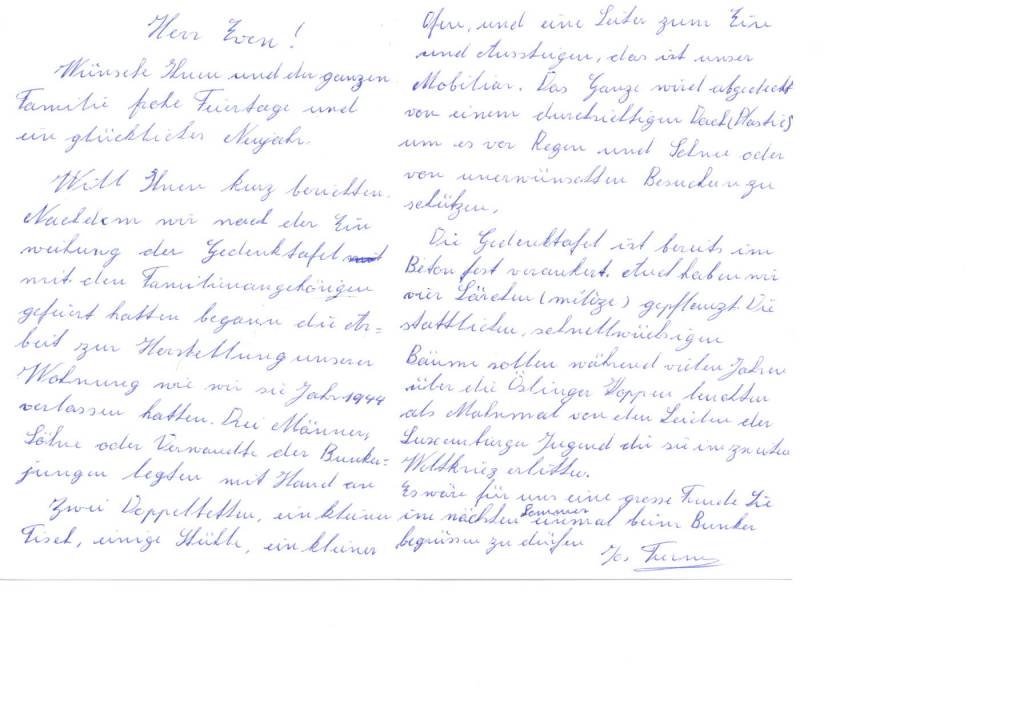 Herr Even!
Wünsche Ihnen und der ganzen
Familie frohe Feiertage und
ein glückliches Neujahr.
Will Ihnen kurz berichten.
Nachdem wir nach der Ein
weihung der Gedenktafel mit
mit den Familienangehörigen
gefeiert hatten begann die Ar=
beit zur Herstellung unserer
Wohnung wie wir sie Jahr 1944
verlassen hatten. Drei Männer,
Söhne oder Verwandte der Bunker=
jungen legten mit Hand an
Zwei Doppelbetten, ein kleiner
Tisch, einige Stühle, ein kleiner
Ofen, und eine Leiter zum Ein
und Aussteigen, das ist unser
Mobiliar. Das Ganze wird abgedeckt
von einem durchsichtigen Dach (Plastic)
um es vor Regen und Schnee oder
von unerwünschten Besuchen zu
schützen.
Die Gedenktafel ist bereits im
Beton fest verankert. Auch haben wir
vier Lärchen (mélèze) gepflanzt. Die
stattlichen, schnellwüchsigen
Bäume sollen während vielen Jahren
über die Öslinger Koppen leuchten
als Mahnmal von den Leiden der
Luxemburger Jugend die sie im zweiten
Weltkrieg erlitten.
Es wäre für uns eine grosse Freude Sie
im nächsten Sommer einmal beim Bunker
begrüssen zu dürfen